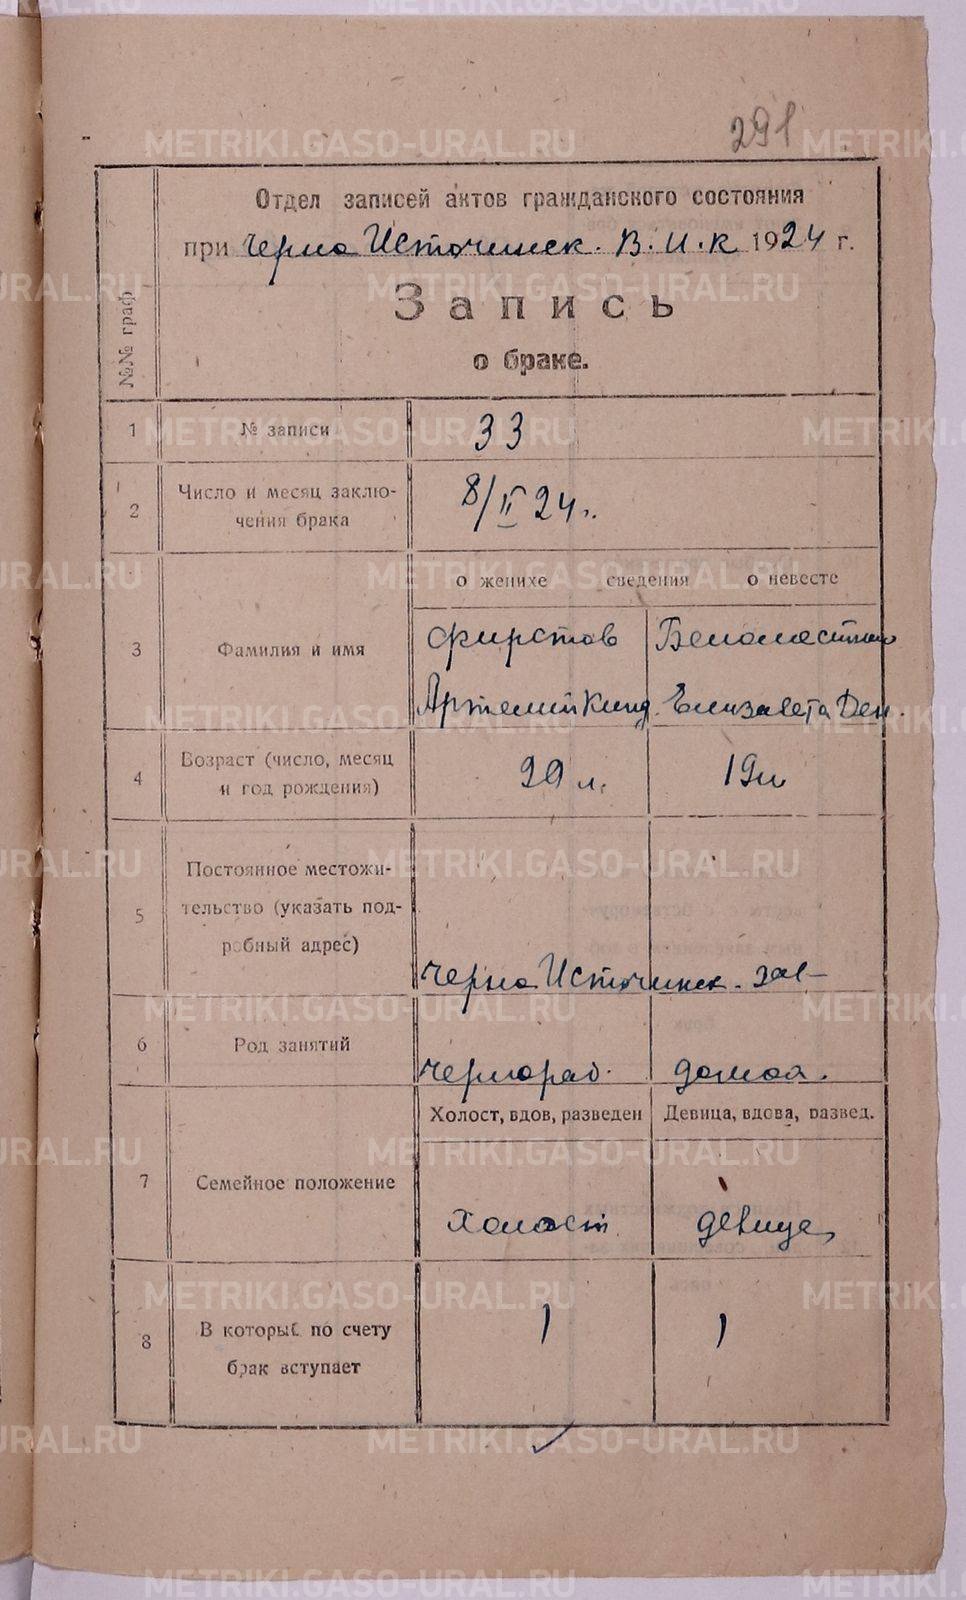 291
Отдел записей актов гражданского состояния
при Черно Источинск. В.И.К 1924 г.
Запись
о браке.
№№ граф
1 № записи 33
2 Число и месяц заключения брака 8/II 24 г.
о женихе сведения о невесте
3 Фамилия и имя Фирстов Беломестных
Артемий Кинд Елизавета Ден.
4 Возраст (число, месяц
и год рождения) 20 л. 19 л
Постоянное местожи-
5 тельство (указать под-
робный адрес)
Черно Источинск. зав
6 Род занятий Чернораб. домох.
Холост, вдов, разведен Девица, вдова, развед.
7 Семейное положение
холост девица
8 В который по счету 1 1
брак вступает
METRIKI.GASO-URAL.RU